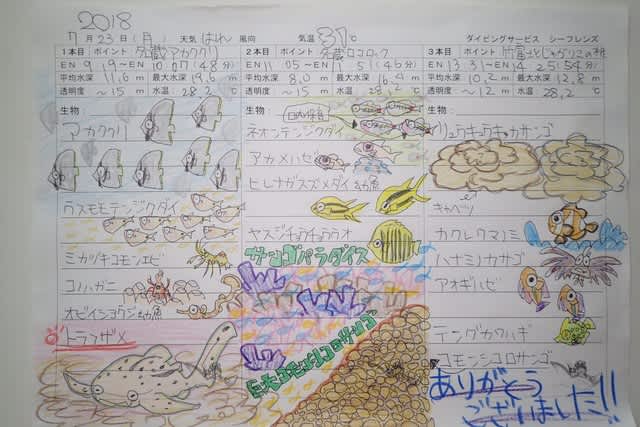 2018
7月23日(月) 天気 はれ 風向 気温 31℃ ダイビングサービス シーフレンズ
1本目 ポイント 名蔵アカククリ
EN 9:19~EX 10:07(48分)
平均水深 11.6m 最大水深 19.6m
透明度 ~15m 水温 28.2℃
生物:
アカククリ
ウスモモテンジクダイ
ミカヅキコモンエビ
コノハガニ
オビイシヨウジン幼魚
トラフザメ
2本目 ポイント 名蔵ロコロック
EN 11:05~EX 11:51(46分)
平均水深 8.0m 最大水深 16.4m
透明度 ~15m 水温 28.2℃
生物:
ネオンテンジクダイ
アカメハゼ
ヒレナガスズメダイ幼魚
ヤスジチョウチョウウオ
サンゴパラダイス
巨大コモンシコロサンゴ
3本目 ポイント
EN 13:31~EX 14:25(54分)
平均水深 10.2m 最大水深 12.8m
透明度 ~12m 水温 28.2℃
生物:
リュウキュウキッカサンゴ
キャベツ
カクレクマノミ
ハナミノカサゴ
アオギハゼ
テングカワハギ
コモンシコロサンゴ
ありがとう
ございました!!